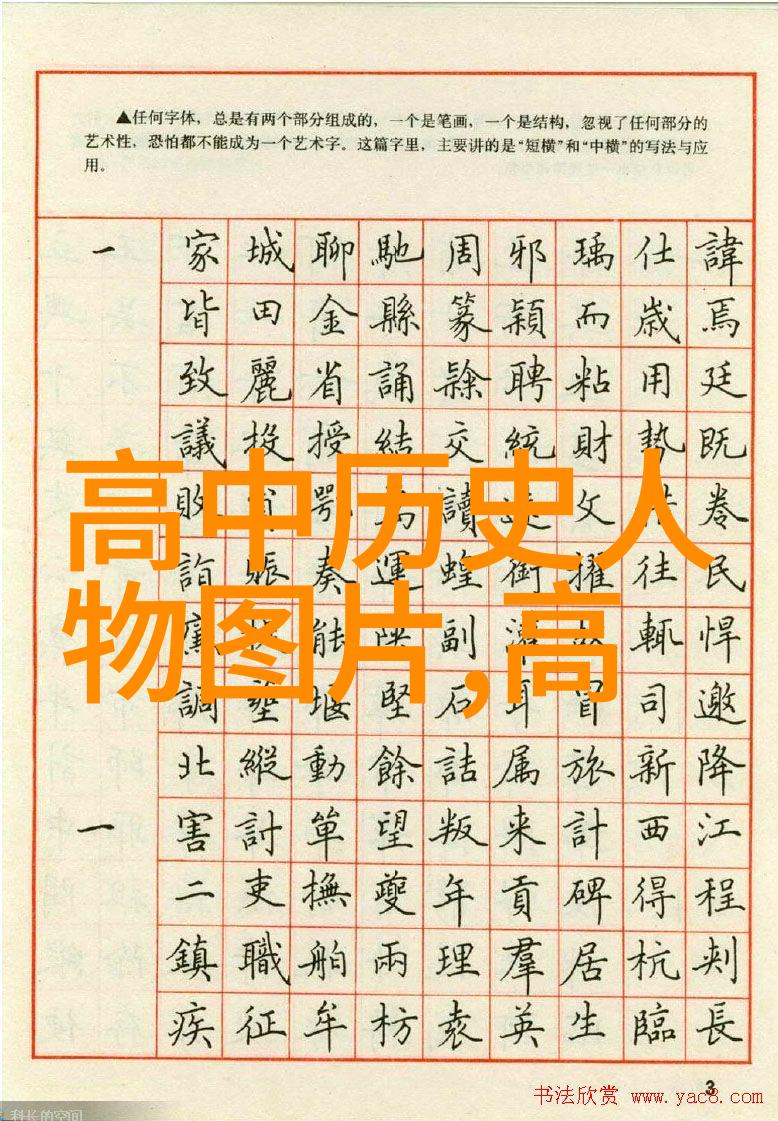 ▲任何字体，总是有两个部分组成的，一个是笔画，一个是结构，忽视了任何部分的
艺术性，恐怕都不能成为一个艺术字。这篇字里，主要讲的是“短横”和“中横”的写法与应
用。
一 家 城 聊 馳 周 邪 瑀 仕 諱
皆 田 金 縣 篆 穎 而 歲 焉
致 麗 省 誦 隸 聘 粘 用 廷
議 投 授 結 交 統 財 勢 既
敗 鄂 讀 文 卷
高中历史人
詣 賬 奏 運 蝗 衝 擢 往 民
能 陝 副 輒 悍
物图片,高
調 壅 堰 堅 石 耳 冒 司 邀
北 縱 動 餘 詰 属 旅 新 降
一 害 討 單 望 叛 来 計 西 江
二 吏 撫 夔 年 貢 碑 得 程
鎮 職 舶 兩 理 羣 居 杭 刺
疾 征 牟 枋 袁 英 生 臨 長
3
书法欣赏 www.yac8.com
科长的空间